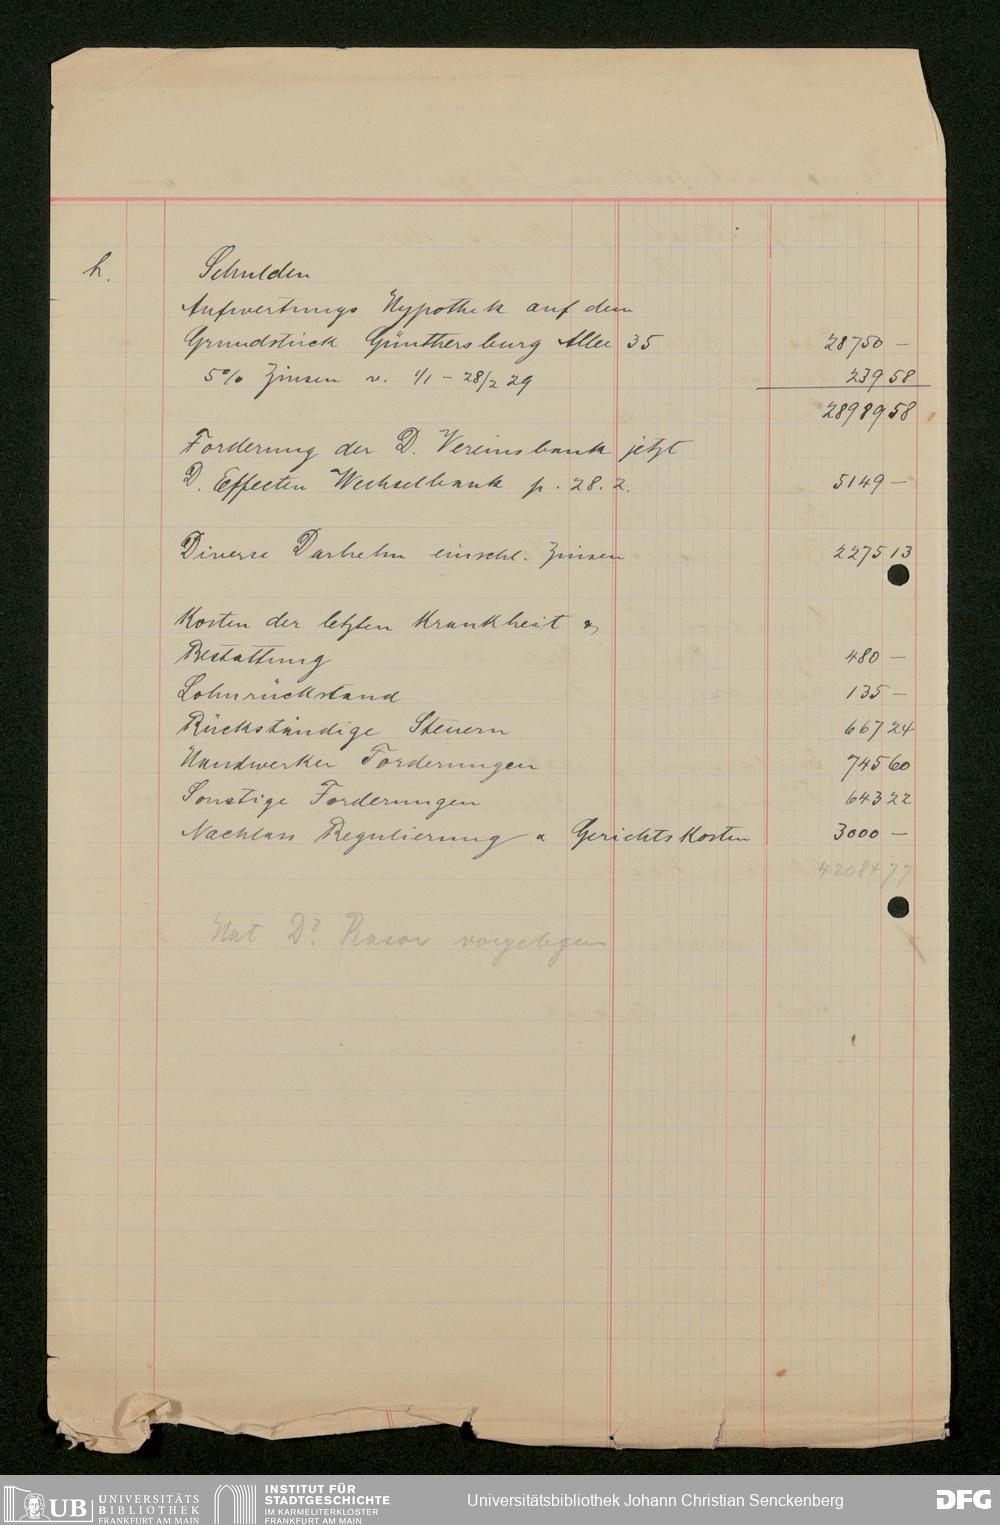 h. Schulden
Aufwertungs Hypothek auf dem
Grundstück Günthersburg Allee 35 28750 –
5% Zinsen v. 1/1 – 28/2 29 239 58
28989 58
Forderung der D. Vereinsbank jetzt
D. Effecten Wechselbank p. 28. 2. 5149 –
Diverse Darlehn einschl. Zinsen 2275 13
Kosten der letzten Krankheit &
Bestattung 480 –
Lohnrückstand 135 –
Rückständige Steuern 667 24
Handwerker Forderungen 745 60
Sonstige Forderungen 643 22
Nachlass Regulierung & Gerichts Kosten 3000 –
42084 77
Hat Dr. Rasor vorgelegen
UB UNIVERSITÄTS
BIBLIOTHEK
FRANKFURT AM MAIN
INSTITUT FÜR
STADTGESCHICHTE
IM KARMELITERKLOSTER
FRANKFURT AM MAIN
Universitätsbibliothek Johann Christian Senckenberg
DFG